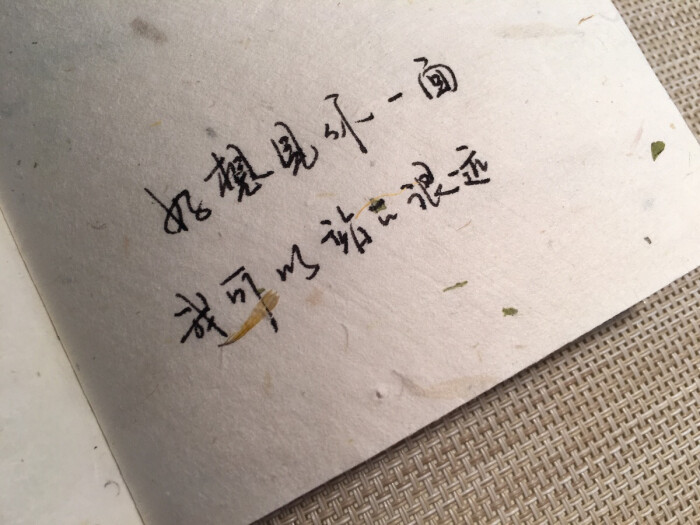 好想見你一面
我可以站的很远